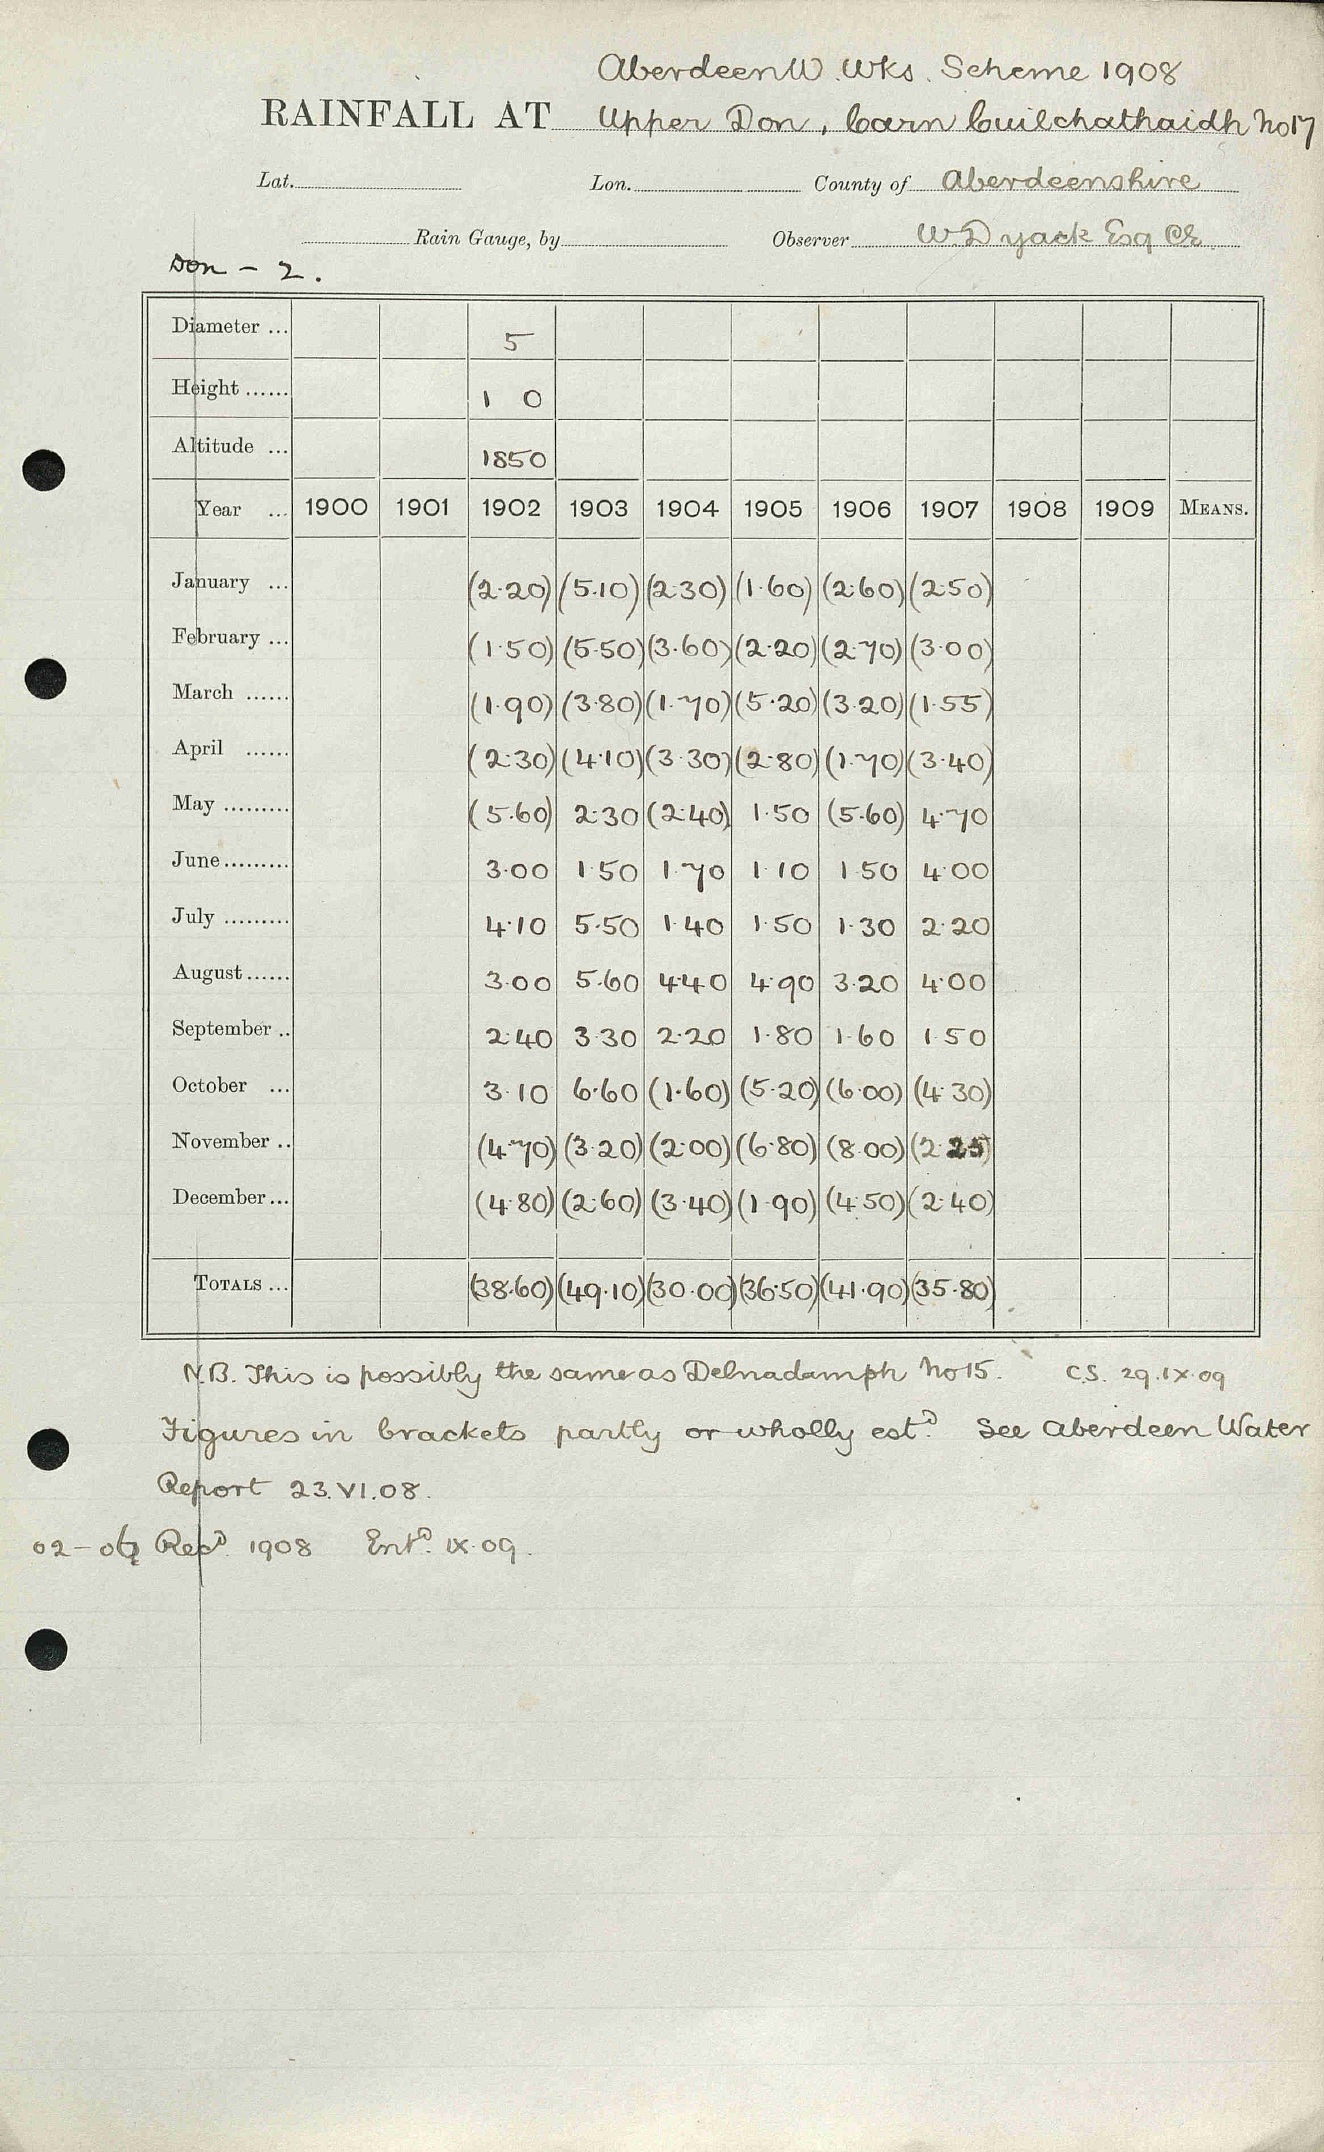 Aberdeen W. Wks. Scheme 1908
RAINFALL AT Upper Don, Carn Cuilchathaidh No 17
Lat. Lon. County of Aberdeenshire
Rain Gauge, by Observer W Dyack Esq CE
Don - 2.
Diameter ... 5
Height ...... 1 0
Altitude ... 1850
Year ... 1900 1901 1902 1903 1904 1905 1906 1907 1908 1909 MEANS.
January ... (2.20) (5.10) (2.30) (1.60) (2.60) (2.50)
February ... (1.50) (5.50) (3.60) (2.20) (2.70) (3.00)
March ...... (1.90) (3.80) (1.70) (5.20) (3.20) (1.55)
April ...... (2.30) (4.10) (3.30) (2.80) (1.70) (3.40)
May ......... (5.60) 2.30 (2.40) 1.50 (5.60) 4.70
June ......... 3.00 1.50 1.70 1.10 1.50 4.00
July ......... 4.10 5.50 1.40 1.50 1.30 2.20
August ...... 3.00 5.60 4.40 4.90 3.20 4.00
September .. 2.40 3.30 2.20 1.80 1.60 1.50
October ... 3.10 6.60 (1.60) (5.20) (6.00) (4.30)
November .. (4.70) (3.20) (2.00) (6.80) (8.00) (2.25)
December ... (4.80) (2.60) (3.40) (1.90) (4.50) (2.40)
TOTALS ... (38.60) (49.10) (30.00) (36.50) (41.90) (35.80)
N.B. This is possibly the same as Delnadamph No 15. C.S. 29.IX.09
Figures in brackets partly or wholly estD. See Aberdeen Water
Report 23.VI.08.
02-07 RecD. 1908 EntD. IX.09.